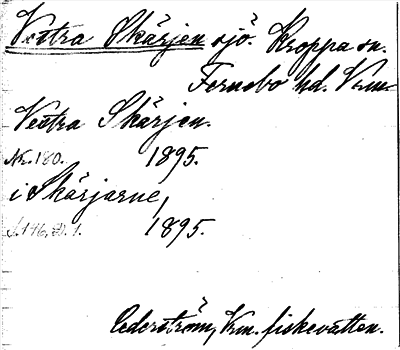 Västra Skärjen sjö. Kroppa sn.
Fernebo hd. Vrm.
Västra Skärjen.
Nr. 180. 1895.
i Skärjarne,
1895.
Cederström, Vrm. fiskevatten.